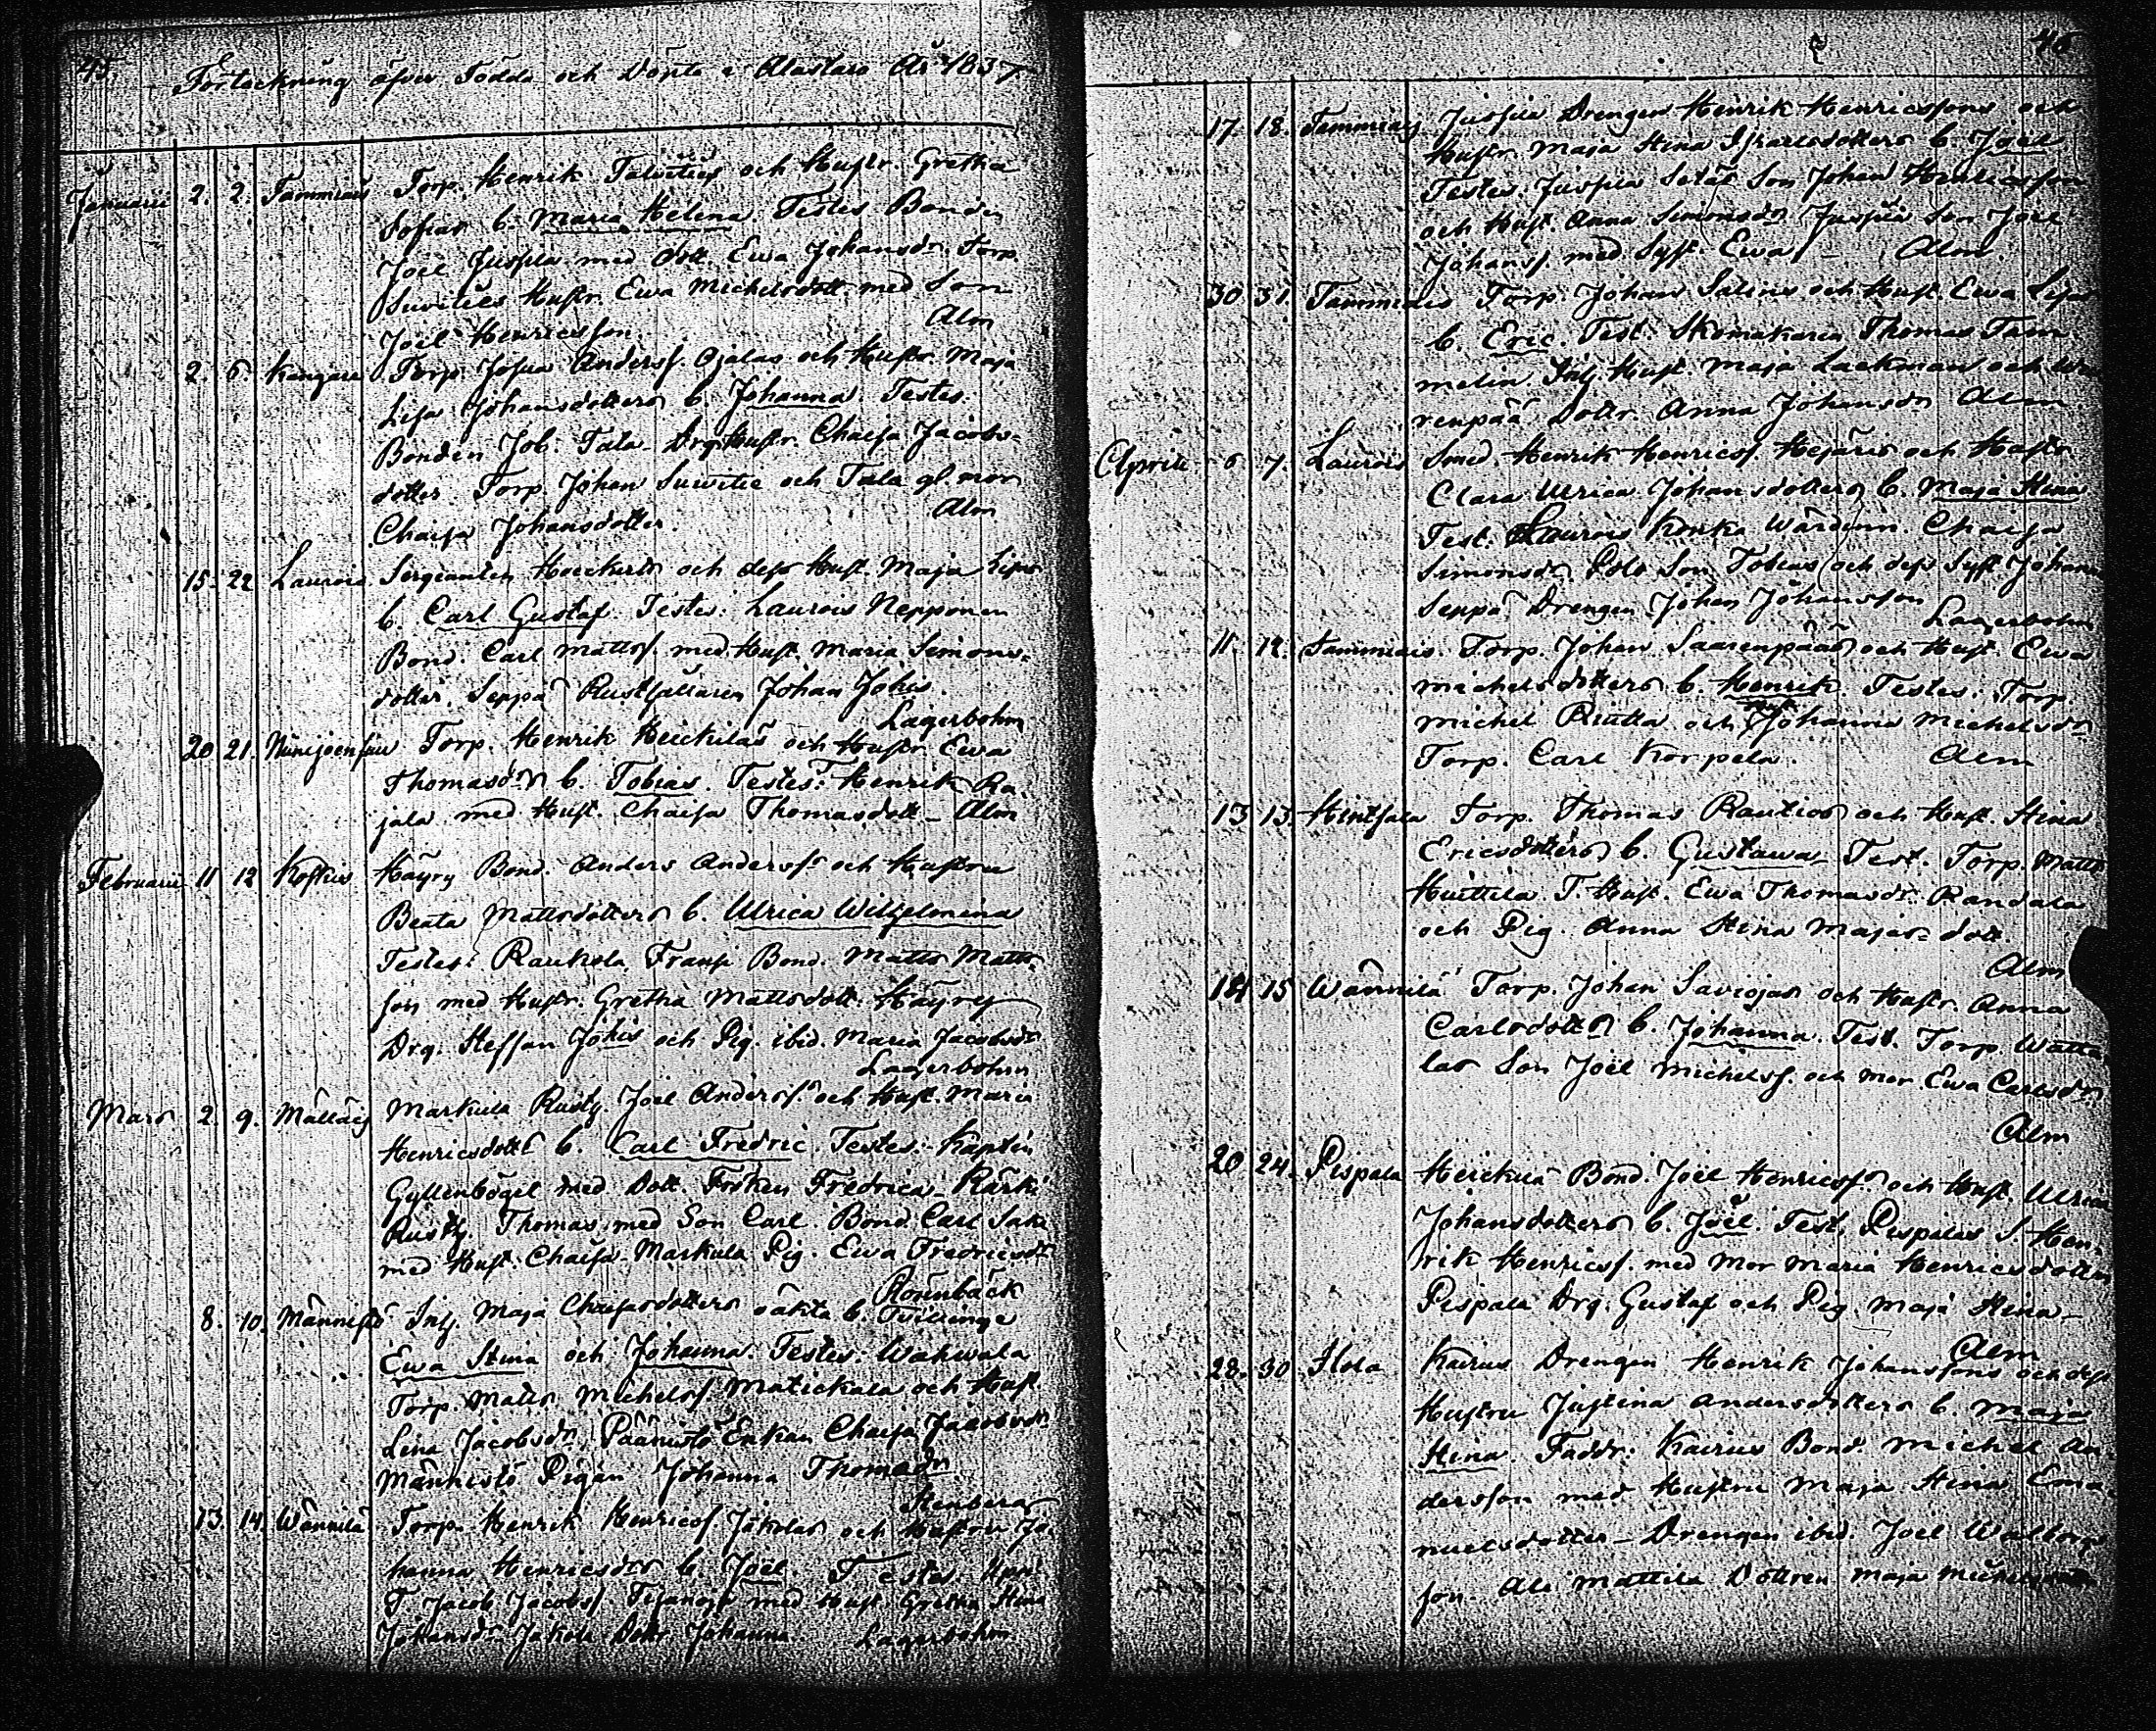 45.
Förteckning öfver Födde och Döpte i Alastaro År 1837
Januarii 2. 2. Tammiais Torp. Henrik Talvities och Hustr. Gretha
Sofias b. Maria Helena. Testes Bonden
Joël Jussila med dott. Ewa Johansdr. Torp.
Suvities Hustr. Ewa Michelsdott. med Son
Joël Henricsson. Alm
2. 6. Kangare Torp. Josua Anderss. Ojalas och Hustr. Maja
Lisa Johansdotters b. Johanna. Testes.
Bonden Job. Tala. Drg Hustr. Chaisa Jacobs-
dotter. Torp. Johan Suvitie och Tala gl. mor
Chaisa Johansdotter. Alm
15. 22 Laurois Sergeanten och dess Hust. Maja
b. Carl Gustaf. Testes: Laurois Nepponen
Bond. Carl Mattss. med Hust. Maria Simons-
dotter. Seppä Rusthållaren Johan Johis.
Lagerbohm
20 21. Niinijoensuu Torp. Henrik Heickiläs och Hustr. Ewa
Thomasdrs b. Tobias. Testes: T. Henrik Ra-
jala med Hust. Chaisa Thomasdott. Alm
Februarii 11 12 Koskis Häyry Bond. Anders Anderss. och Hustru
Beata Mattsdotters b. Ulrica Wilhelmina
Testes: Raukola Fransi Bond. Matts Matts-
son med Hustr. Gretha Mattsdott. Häyry
Drg. Steffan Johis och Pig. ibid. Maria Jacobsdr
Lagerbohm
Mars 2. 9. Mälläis Markula Rusth. Joël Anderss. och Hust. Maria
Henricsdotts b. Carl Fredric. Testes: Kapten
Gyllenbögel med Dott. Fröken Fredrica. Kärki
Rusth. Thomas med Son Carl. Bond. Carl
med Hust. Chaisa. Markula Pig. Ewa Fredricsdr
Rosenback
8. 10. Männistö Inh. Maja Chaisasdotters oäkta b. Tvillinge
Ewa Stina och Johanna. Testes: Wahwala
Torp. Matts Michelss. Matickala och Hust.
Lina Jacobsdr, Päänistö Enkan Chaisa Jacobsdr
Männistö Pigan Johanna Thomasdr
Stenberg
13. 14. Wännilä Torp. Henrik Henricss. Jäkolas och Hustru Jo-
hanna Henricsdrs b. Joël. Testes
T. Jacob Jacobss. med Hust. Gretha Stina
Johansdr. Jäkola Dottr Johanna. Lagerbohm
46
17. 18. Tammiais Jussila Drengens Henrik Henricssons och
Hustr. Maja Stina Israelsdotters b. Joël
Testes. Jussila Son Johan Henricsson
och Hust. Anna Simonsdr Jussila Son Joël
Johanss. med Syst. Ewa. Alm
30 31. Tammiais Torp. Johan Salins och Hust. Ewa Lisas
b. Eric. Test. Skomakaren Thomas Tam-
melin. Inh. Hust. Maja Lackman och
renpää Dottr. Anna Johansdr Alm
Aprill 6 7. Laurois Smed. Henrik Henricss. Hejäris och Hustr
Clara Ulrica Johansdotters b. Maja Stina
Test. Laurois Konka Wärdinn. Chaisa
Simonsdr. Son Tobias och dess Syst. Johanna
Seppä Drengen Johan Johansson
Lagerbohm
11. 12. Tammiais. Torp. Johan Saarenpääs och Hust. Ewa
Michelsdotters b. Henrik. Testes: Torp.
Michel Riutta och Hust Johanna Michelsdr
Torp. Carl Korpela. Alm
13 13. Hirtsala Torp. Thomas Rautios och Hust. Stina
Ericsdotters b. Gustawa. Test. Torp. Matts
Huittila. T. Hust. Ewa Thomasdr. Randala
och Pig. Anna Stina Majas-dott.
Alm
14 15 Wännilä Torp. Johan Saviojas och Hustr. Anna
Carlsdotts b. Johanna. Test. Torp.
las Son Joël Michelss. och mor Ewa Carlsdr
Alm
20 24. Pispala Heickilä Bond. Joël Henricss. och Hust. Ulrica
Johansdotters b. Joël. Test. Pispalas S. Hen-
rik Henricss. med Mor Maria Henricsdotter
Pispala Drg. Gustaf och Pig. Maja Stina
Alm
28. 30 Ilola Kairus Drengen Henrik Johanssons och dess
Hustru Justina Andersdotters b. Maja
Stina. Faddr: Kairus Bond Michel An-
dersson med Hustru Maja Stina Ema-
nuelsdotter. Drengen ibid. Joël Walborgs
son. Ali Mattila Dottren Maja Michelsdotter